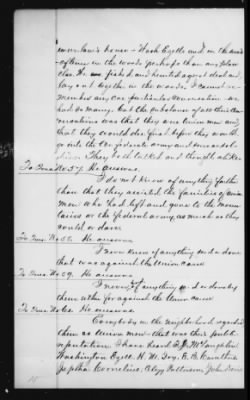 in-law's house & Wash Ezell and in the woods
often in the woods perhaps than any place
else. He fished and hunted a great deal and
lay out together in the woods. I cannot re-
member any one particular conversation we
had so many. But the substance of all their con-
versations was that they were Union men and
that they would die first before they would
go into the Confederate army and
They both talked and thought alike.
To Ques No. 37. He answers
I do not know of anything further
than that they assisted the families of Union
men who had left and gone to the moun-
tains or the federal army, as much as they
could or dare.
To Ques No. 38. He answers
I never knew of anything said or done
that was against the Union cause
To Ques No. 39. He answers
I never of anything said or done by
them either for or against the Union cause
To Ques No. 40. He answers
Everybody in the neighborhood regarded
them as Union men that was their public
reputation. I have heard McLaughlin
Washington Ezell, H. M. Foy,
Jeptha Cornelius, Patterson, John